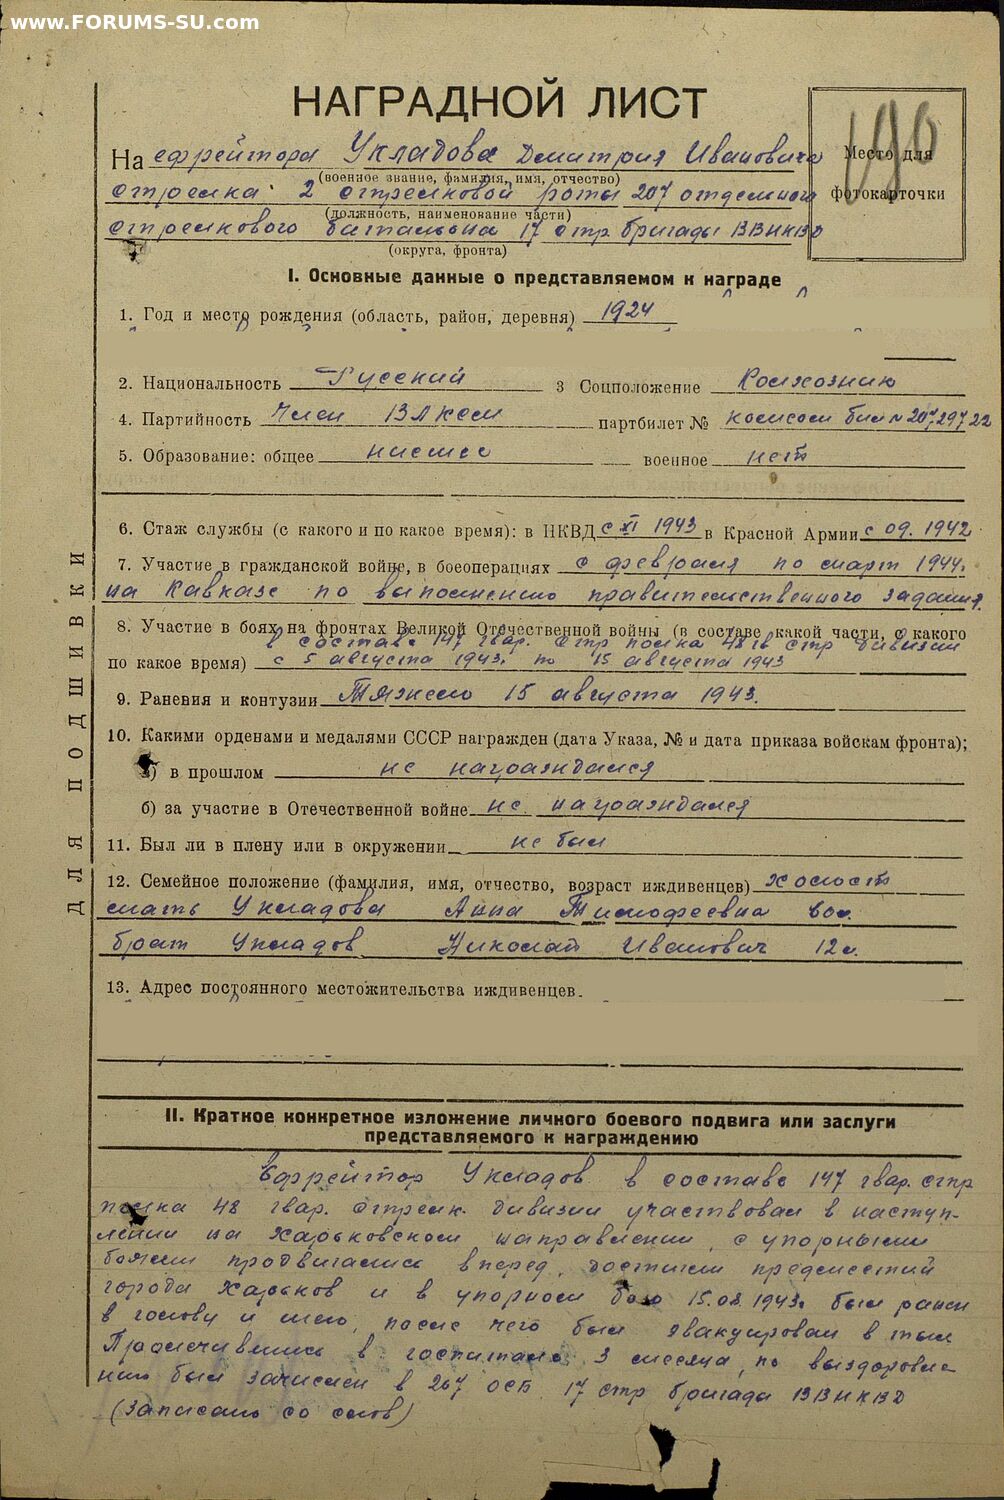 www.FORUMS-SU.com
НАГРАДНОЙ ЛИСТ
190
Место для
фотокарточки
На ефрейтора Укладова Дмитрия Ивановича
(военное звание, фамилия, имя, отчество)
стрелка 2 стрелковой роты 207 отдельного
(должность, наименование части)
стрелкового батальона 17 стр бригады ВВ НКВД
(округа, фронта)
I. Основные данные о представляемом к награде
1. Год и место рождения (область, район, деревня) 1924
2. Национальность Русский 3 Соцположение Колхозник
4. Партийность Член ВЛКСМ партбилет № комсом бил № 20729722
5. Образование: общее низшее военное нет
6. Стаж службы (с какого и по какое время): в НКВД с XI 1943 в Красной Армии с 09. 1942
7. Участие в гражданской войне, в боеоперациях с февраля по март 1944г.
на Кавказе по выполнению правительственного задания.
8. Участие в боях на фронтах Великой Отечественной войны (в составе какой части, с какого
в составе 147 гвар. стр полка 48 гв стр дивизии
по какое время) с 5 августа 1943г. по 15 августа 1943
9. Ранения и контузии Тяжело 15 августа 1943.
10. Какими орденами и медалями СССР награжден (дата Указа, № и дата приказа войскам фронта);
а) в прошлом не награждался
б) за участие в Отечественной войне не награждался
11. Был ли в плену или в окружении не был
12. Семейное положение (фамилия, имя, отчество, возраст иждивенцев) холост
мать Укладова Анна Тимофеевна 60л.
брат Укладов Николай Иванович 12л.
13. Адрес постоянного местожительства иждивенцев.
ДЛЯ ПОДШИВКИ
II. Краткое конкретное изложение личного боевого подвига или заслуги
представляемого к награждению
Ефрейтор Укладов в составе 147 гвар. стр
полка 48 гвар. стрелк. дивизии участвовал в наступ-
лении на Харьковском направлении, с упорными
боями продвигались вперед, достигли предместий
города Харьков и в упорном бою 15.08.1943г. был ранен
в голову и шею, после чего был эвакуирован в тыл
Пролечившись в госпитале 3 месяца, по выздоровле-
нию был зачислен в 267 ОСБ 17 стр бригада ВВ НКВД
(Записано со слов)